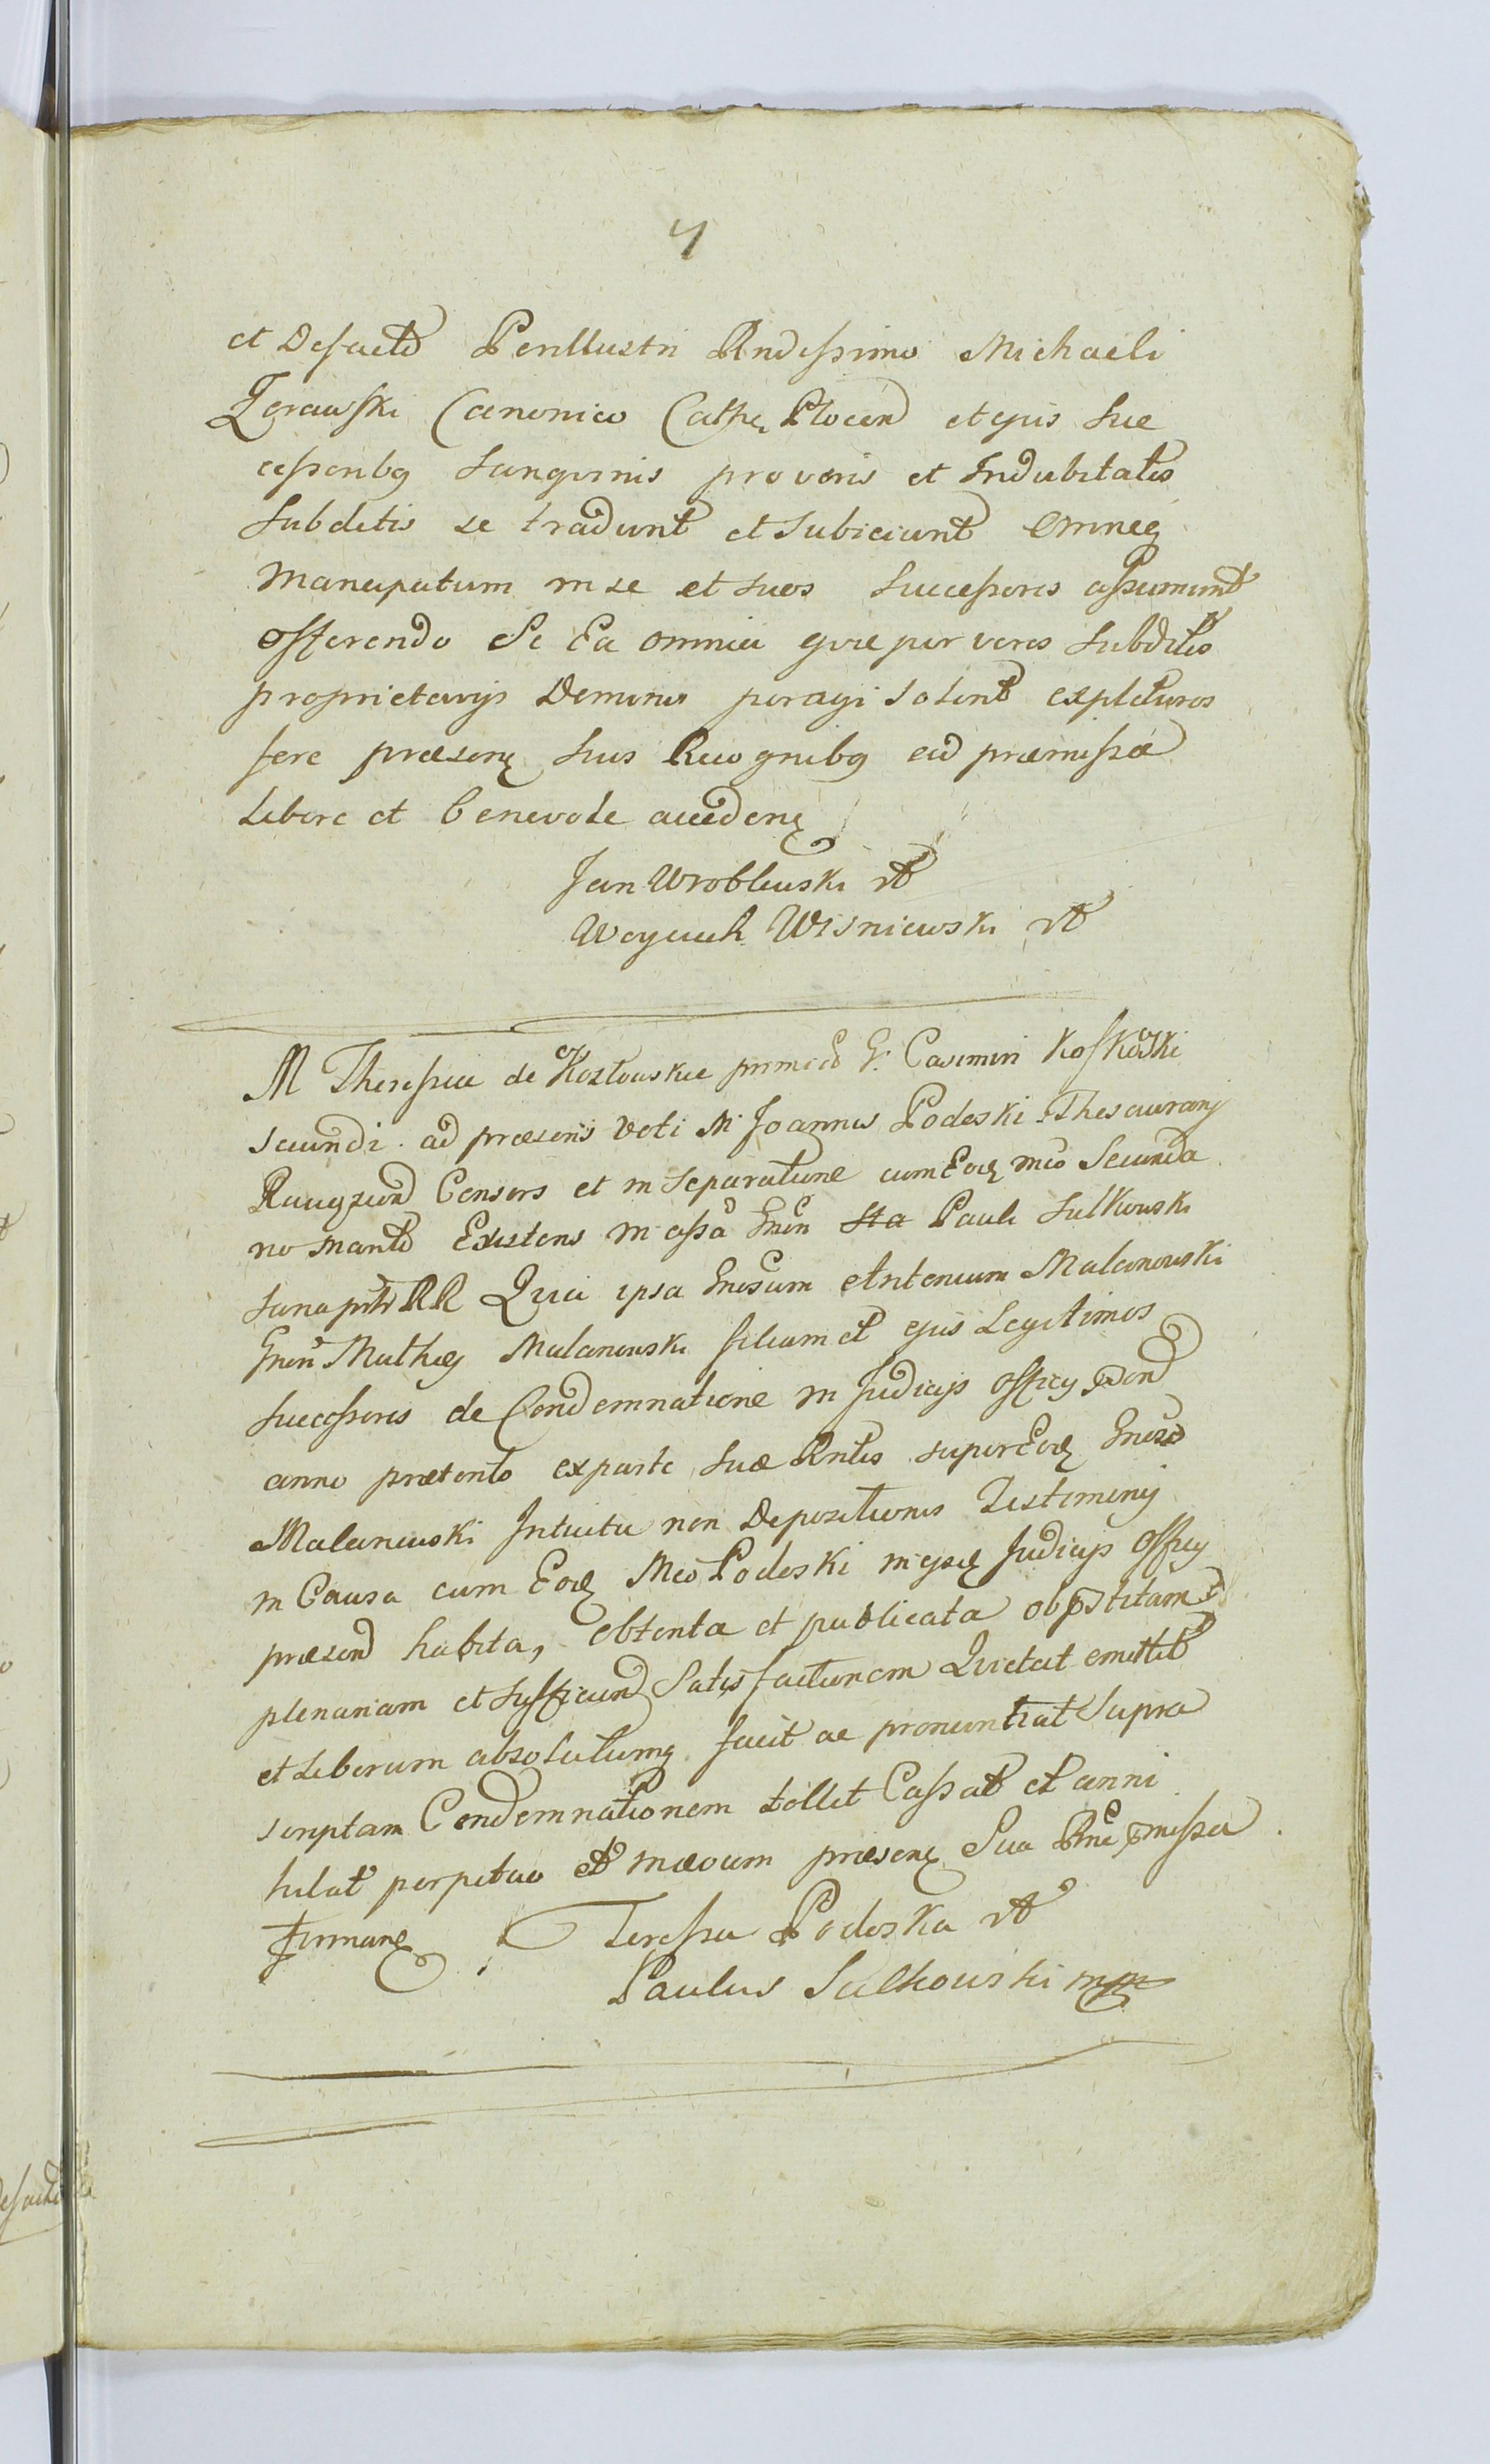 4
et Defacto Perillustri Rndissimo Michaeli
Zorawski Canonico Cathe Plocen et ejus Suc
cessoribq Sanguinis pro veris et Indubitatis
Subditis se tradunt et Subiciunt Omneq
Mancipatum in se et suos Successores assumunt
offerendo Se Ea omnia quae per veros Subditos
proprietarijs Dominis peragi solent expleturos
fore praesenq suis Recognibq ad praemissa
Libere et benevole accedenq
Jan Wroblewski
Woyciech Wisniewski
M Theressia de Kozlowskie primo G. Casimiri Koskowski
secundi ad praesens voti M Joannis Podoski Thesaurarij
Rozan Consors et in separatione cum Eodq Mco Secundo
no Marito Existens in assa Gnen Pauli Sulkowski
sana RR Quia ipsa Gnosum Antonium Malanowski
Gnen Mathiq Malanowski filium et ejus Legitimos
Successores de Condemnatione in Judicijs Officij
anno praetento ex parte Sua Rntis super Eodq Gnoso
Malanowski Intuitu non Depositionis Testimonij
in Causa cum Eodq Mco Podoski in ejsdq Judicijs Officij
praesen habita, obtenta et publicata ob
plenariam et Sufficien Satisfactionem Quietat emittit
et Liberum absolutumq facit ac pronuntiat Supra
scriptam Condemnationem tollit Cassat et anni
hilat perpetuo et in aevum praesenq Sua Rne pmissa
firmanq
Teressa Podoska
Paulus Sulkowski mp